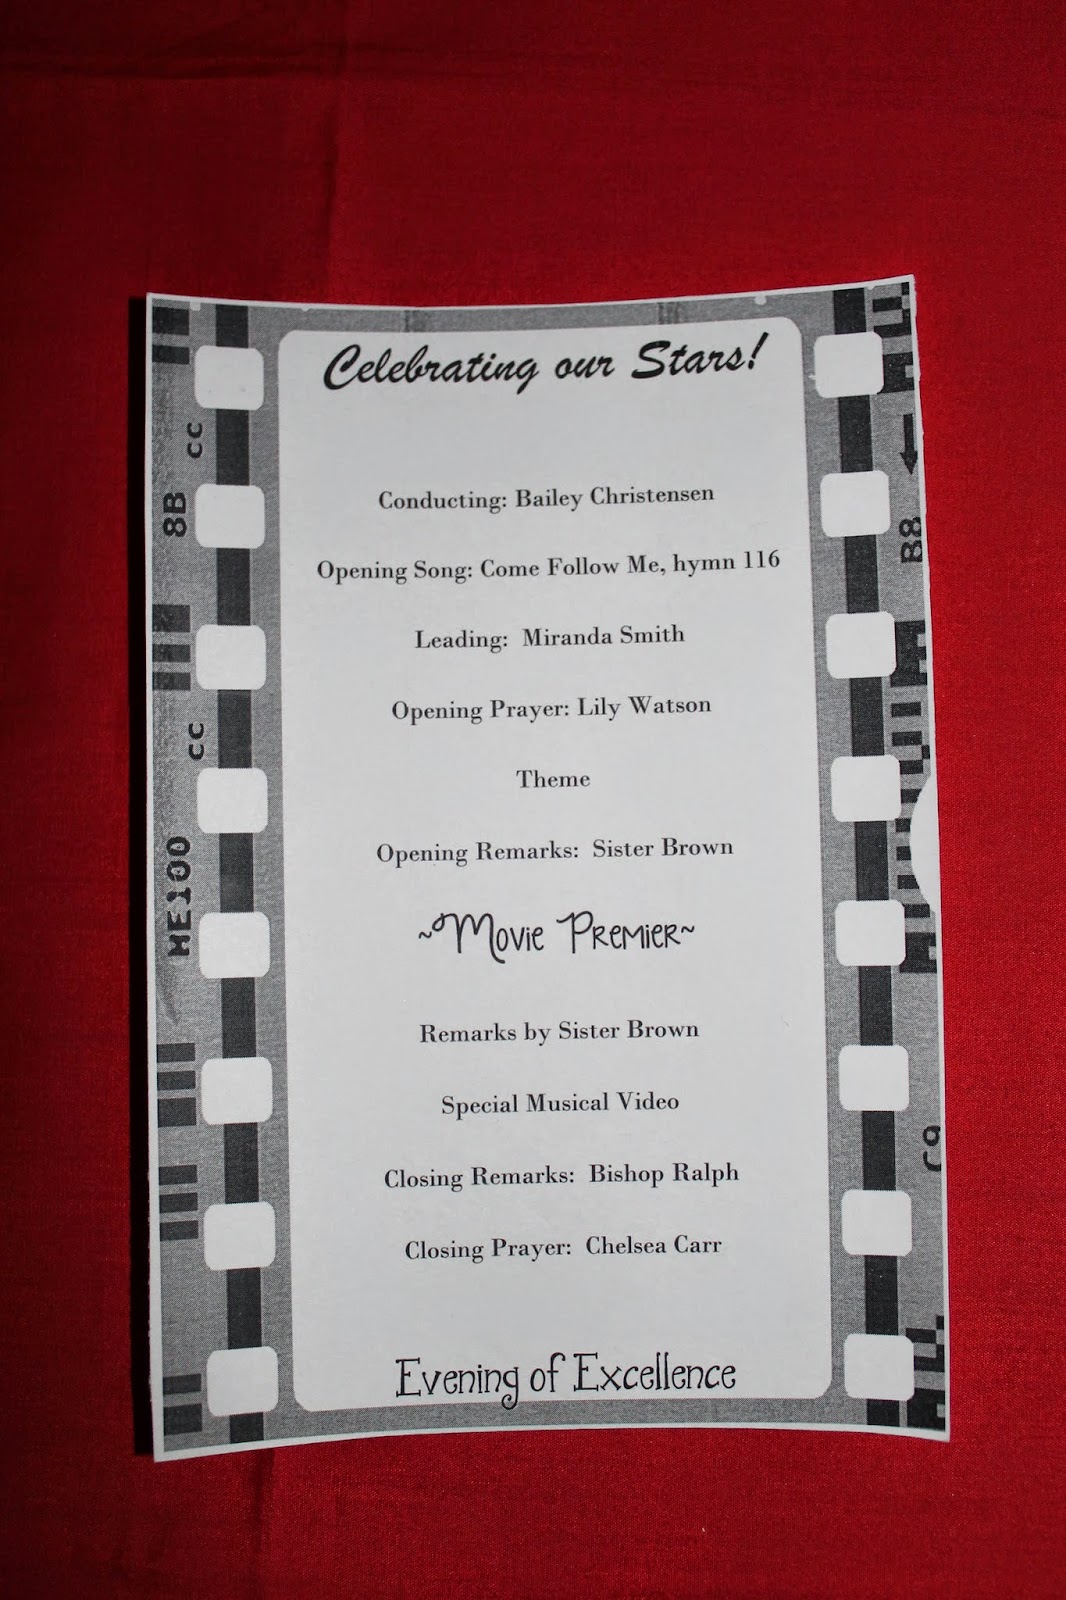 Celebrating our Stars!
Conducting: Bailey Christensen
Opening Song: Come Follow Me, hymn 116
Leading: Miranda Smith
Opening Prayer: Lily Watson
Theme
Opening Remarks: Sister Brown
~Movie Premier~
Remarks by Sister Brown
Special Musical Video
Closing Remarks: Bishop Ralph
Closing Prayer: Chelsea Carr
Evening of Excellence
CC
8B
CC
ME100
B8
C9